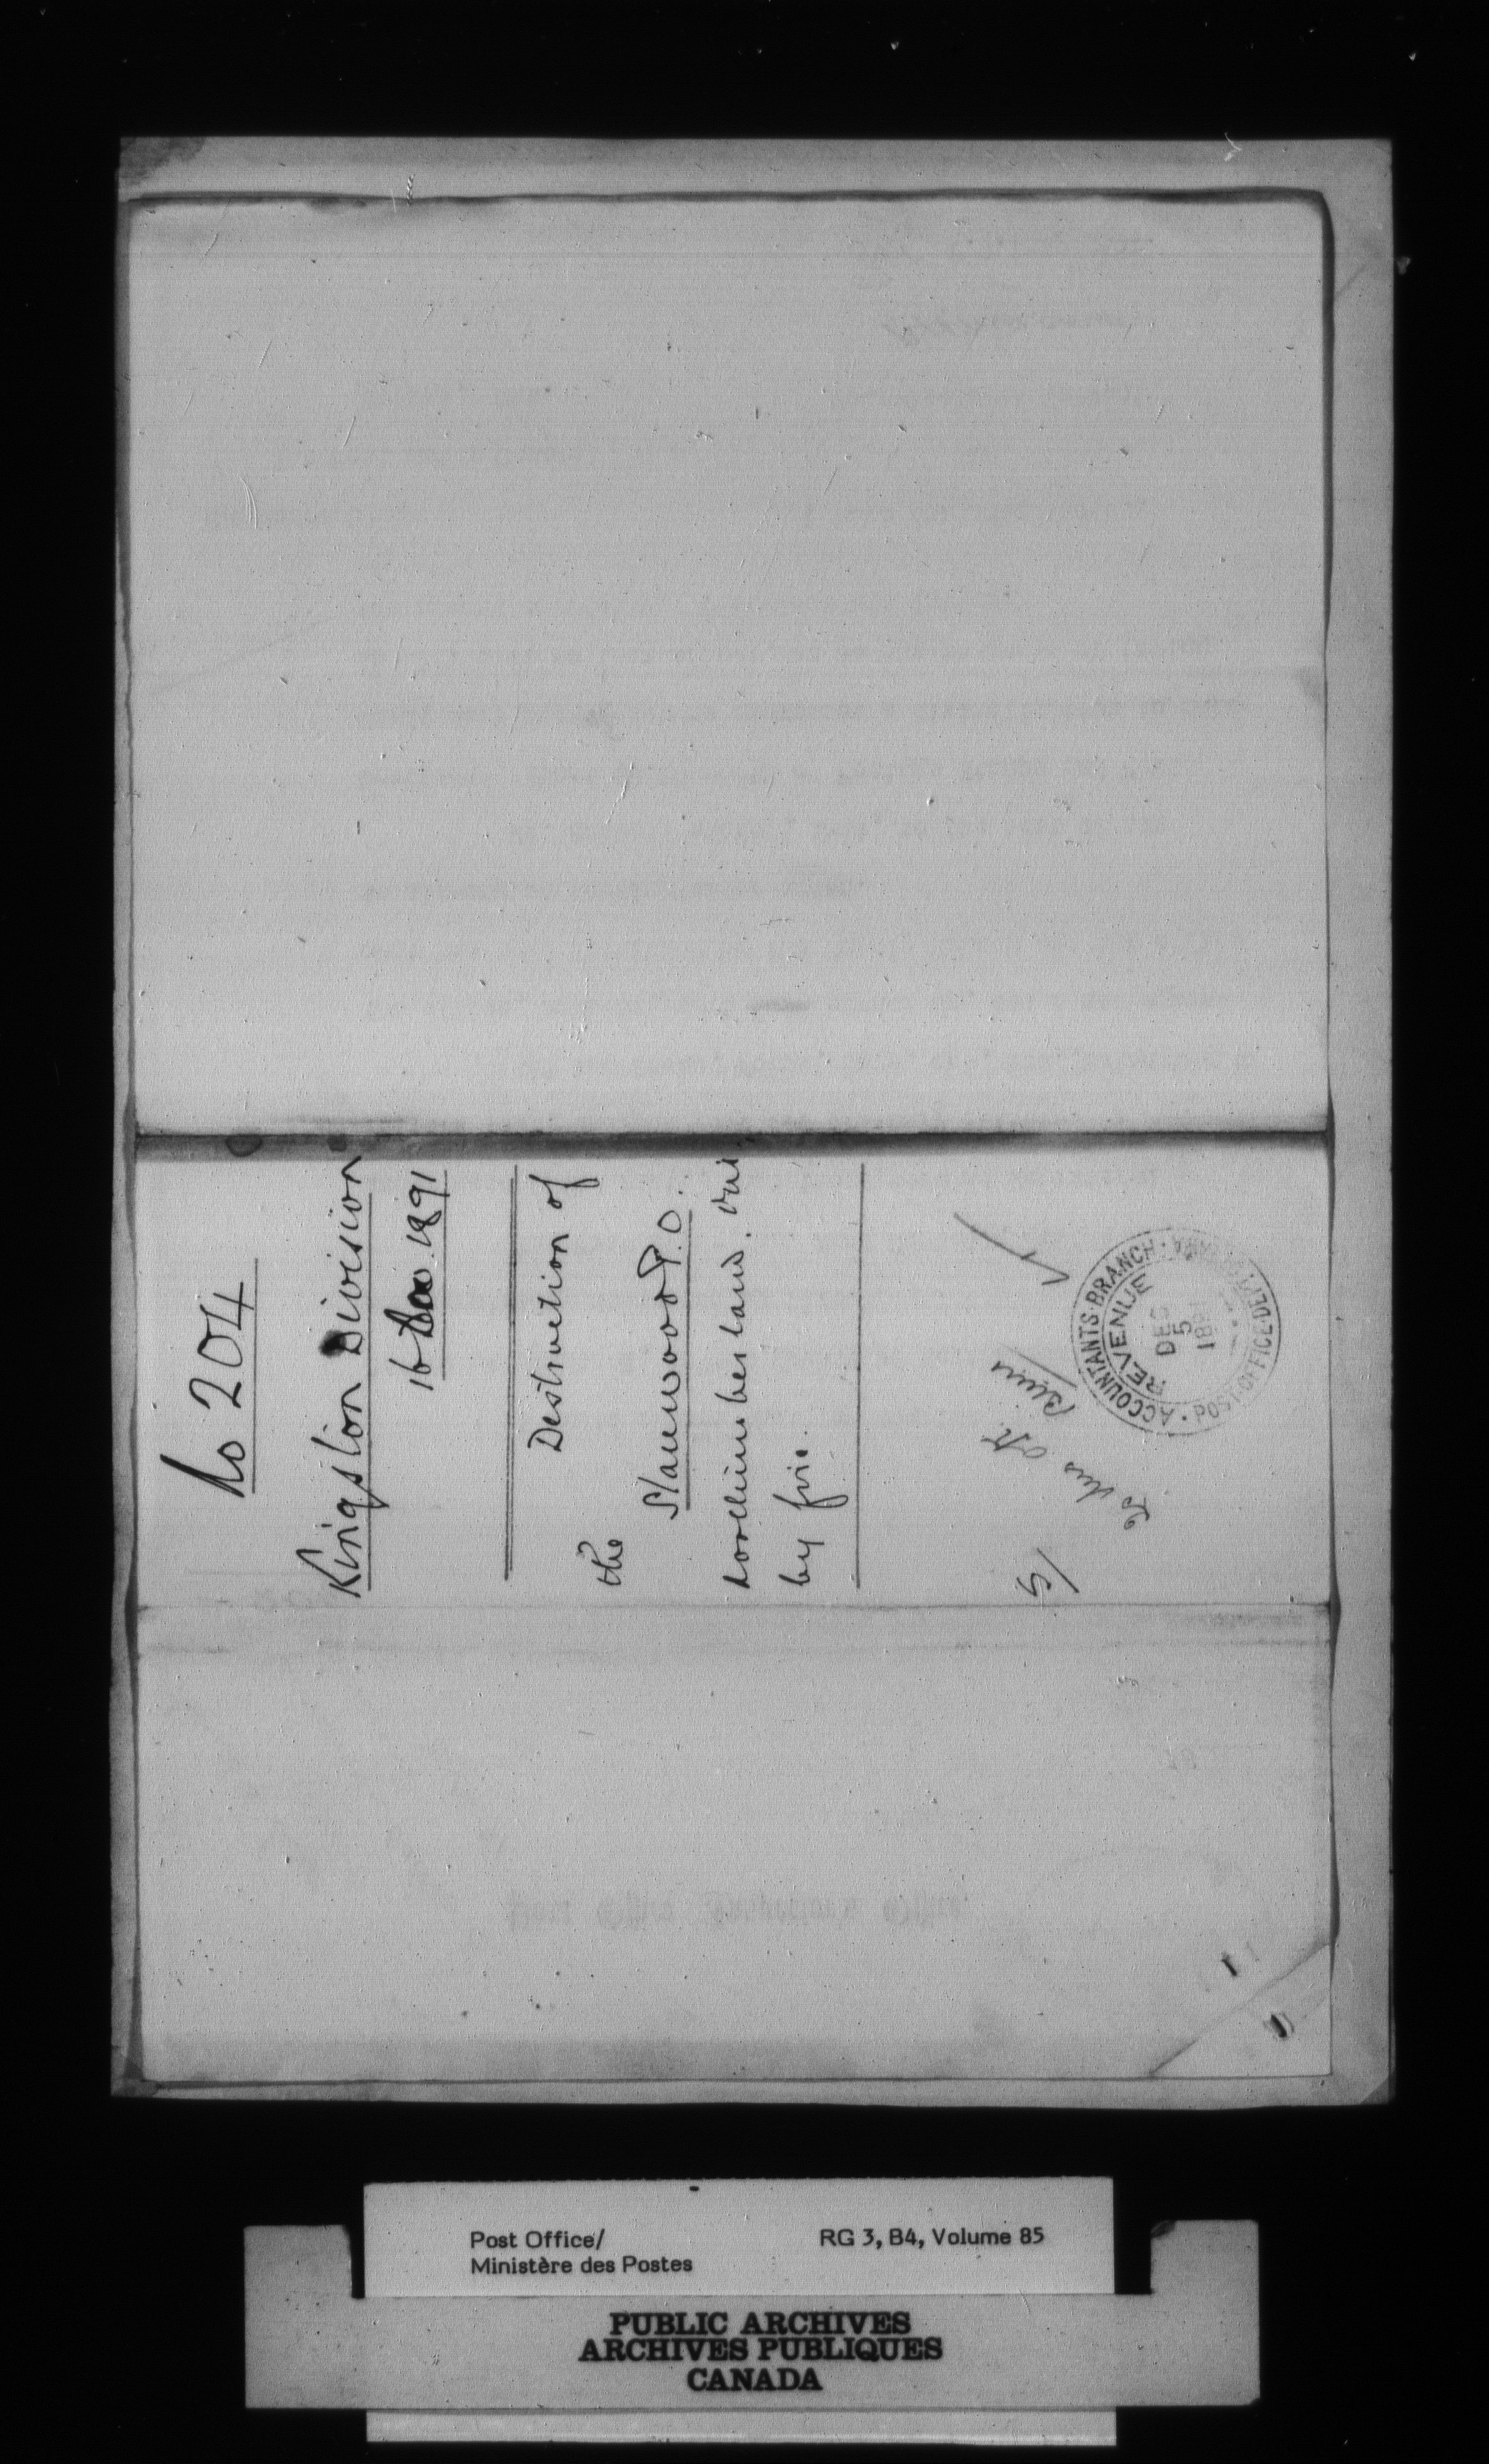 No 204
Kingston Division
16 1891
Destruction of
the
Stanwood P.O.
Northumberland, Ont
by fire.
5/
ACCOUNTANTS·BRANCH·
REVENUE
DEC
5
POST·OFFICE·DEPT
Post Office/
Ministère des Postes
RG 3, B4, Volume 85
PUBLIC ARCHIVES
ARCHIVES PUBLIQUES
CANADA